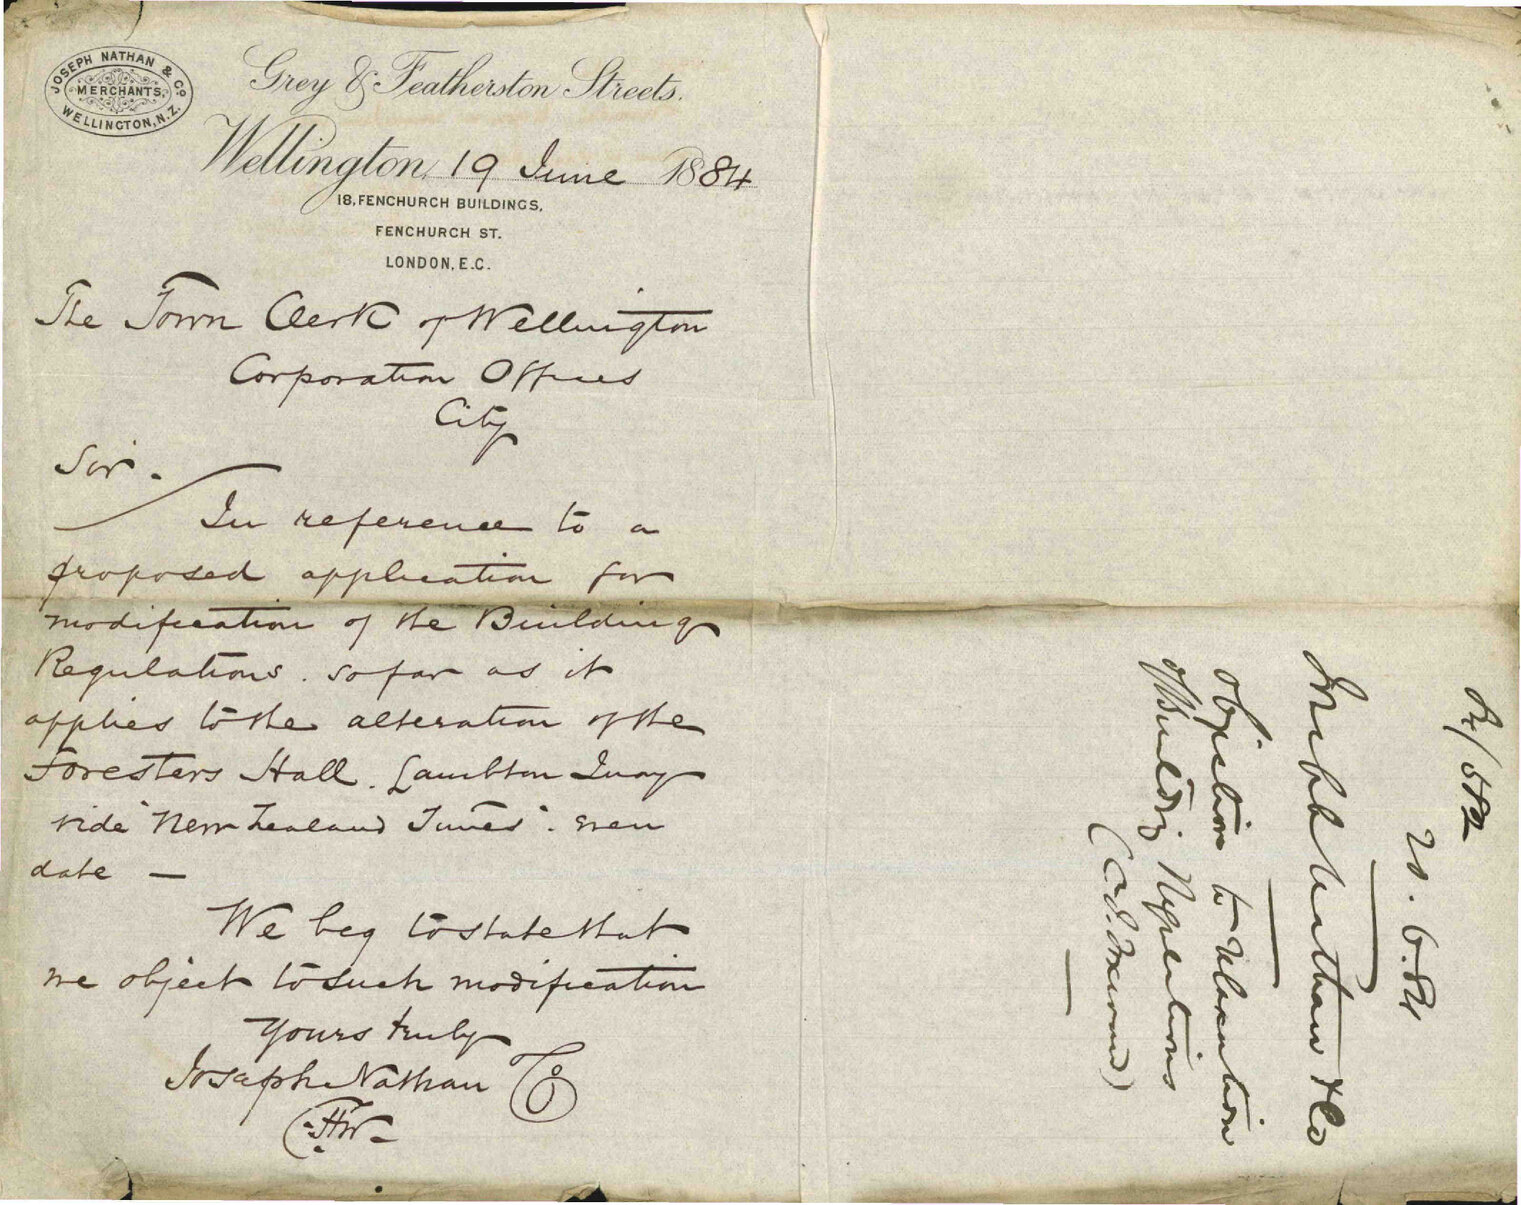 JOSEPH NATHAN & Co
MERCHANTS,
WELLINGTON, N.Z.
Grey & Featherston Streets.
Wellington, 19 June 1884
18, FENCHURCH BUILDINGS,
FENCHURCH ST.
LONDON, E.C.
The Town Clerk of Wellington
Corporation Offices
City
Sir.
In reference to a
proposed application for
modification of the Building
Regulations. so far as it
applies to the alteration of the
Foresters Hall. Lambton Quay
vide "New Zealand Times". even
date —
We beg to state that
we object to such modification
Yours truly
Joseph Nathan & Co
20.6.84
Nathan & Co
Objection to Relaxation
of Building Regulations